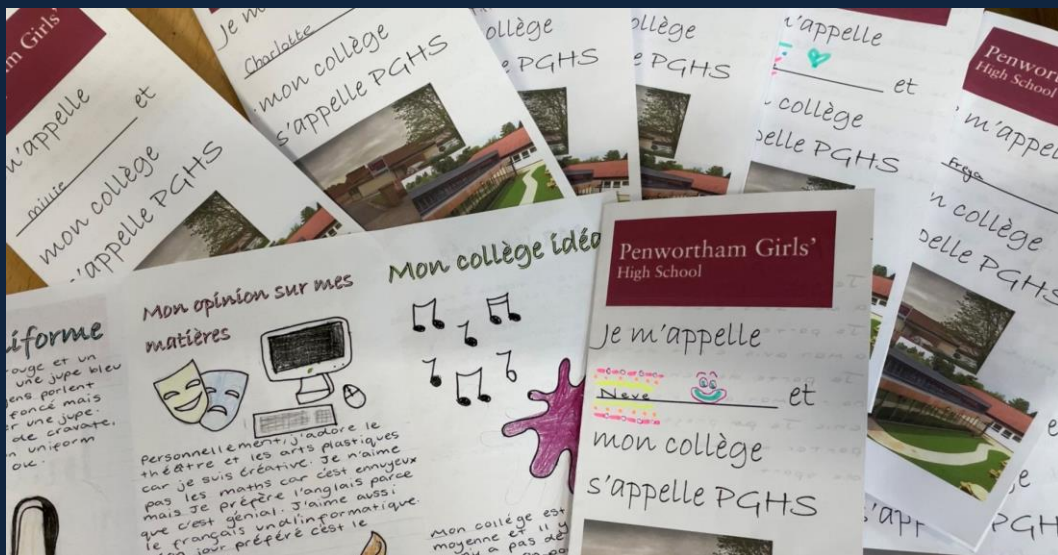 m Girls'
m'appelle
millie et
mon collège
s'appelle PGHS
Je m'
Charlotte
mon collège
s'appelle PGHS
ollège
PGHS
ollège
e PGHS
m'appelle
et
collège
pelle PGHS
Penwort
High School
m'appel
Freya
n collège
pelle PGHS
iforme
rouge et un
une jupe bleu
ens portent
foncé mais
er une jupe.
de cravate,
n uniform
Mon opinion sur mes
matières
Personnellement, j'adore le
théâtre et les arts plastiques
car je suis créative. Je n'aime
pas les maths car c'est ennuyeux
mais je préfère l'anglais parce
que c'est génial. J'aime aussi
le français
jour préféré c'est le
Mon collège idéa
Mon collège est
moyenne et il y
a pas de
Penwortham Girls'
High School
Je m'appelle
Neve et
mon collège
s'appelle PGHS
s'app
PGH